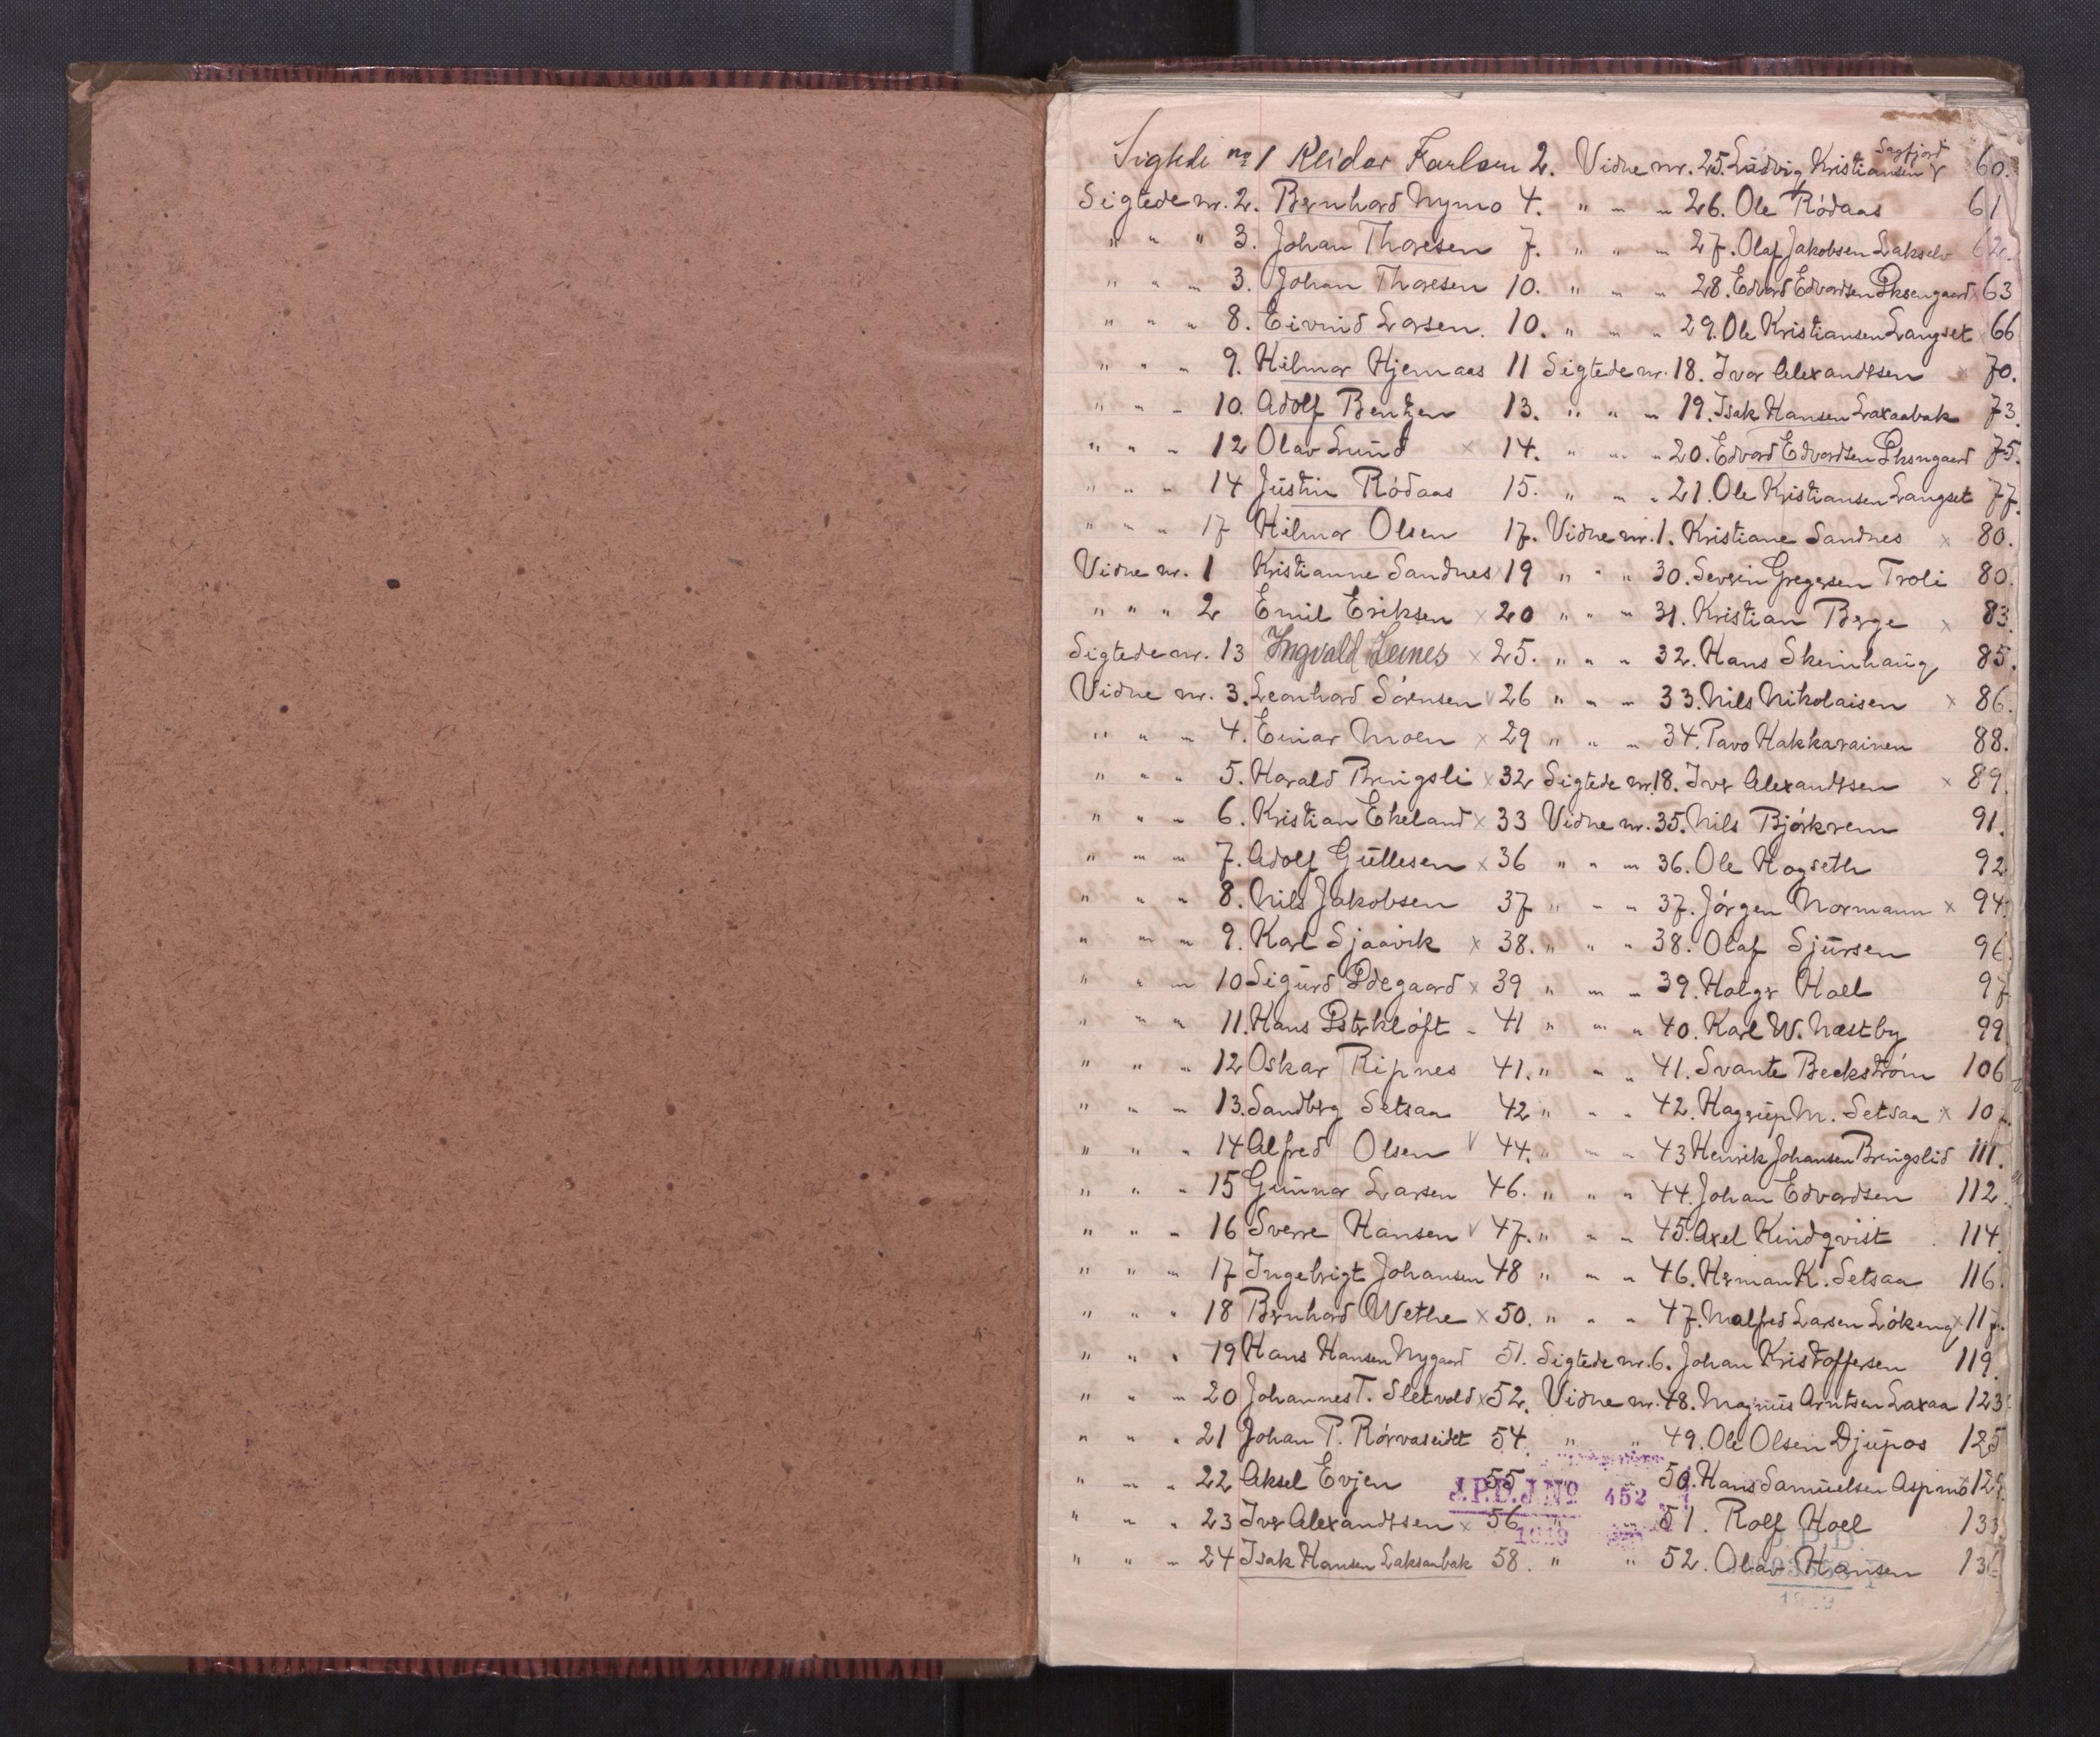 Sigtede no 1 Reidar Karlsen 2. Vidne nr. 25. Ludvig Kristiansen Sagfjord 60.
Sigtede nr. 2. Bernhard Nymo 4. " " " 26. Ole Rödaas 61
" " " 3. Johan Thoresen 7. " " " 27. Olaf Jakobsen Lakselv 62.
" " " 3. Johan Thoresen 10. " " " 28. Edvard Edvardsen Øksengaard 63
" " " 8. Eivind Larsen. 10. " " " 29. Ole Kristiansen Langset 66
" " " 9. Hilmar Hjemaas 11 Sigtede nr. 18. Ivar Alexandersen 70.
" " " 10. Adolf Bentzen 13. " " " 19. Isak Hansen Laxaabak 73.
" " " 12 Olav Lund x 14. " " " 20. Edvard Edvardsen Øksngaard 75.
" " " 14 Justin Rödaas 15. " " " 21. Ole Kristiansen Langset 77.
" " " 17 Hilmar Olsen 17. Vidne nr. 1. Kristiane Sandnes x 80.
Vidne nr. 1 Kristianne Sandnes x 19 " " " 30. Severin Gregersen Troli 80.
" " " 2 Emil Eriksen x 20 " " " 31. Kristian Berge x 83.
Sigtede nr. 13 Ingvald Leines x 25. " " " 32. Hans Skeinhaug 85.
Vidne nr. 3. Leonhard Sörensen v 26 " " " 33. Nils Nikolaisen x 86.
" " " 4. Einar Moen x 29 " " " 34. Pavo Hakkarainen 88.
" " " 5. Harald Bringsli x 32 Sigtede nr. 18. Iver Alexandersen x 89.
" " " 6. Kristian Ekeland x 33 Vidne nr. 35. Nils Bjørkrem 91.
" " " 7. Adolf Gullesen x 36 " " " 36. Ole Hogseth 92
" " " 8. Nils Jakobsen 37 " " " 37. Jörgen Normann x 94.
" " " 9. Karl Sjaavik x 38. " " " 38. Olaf Sjursen 96.
" " " 10 Sigurd Ødegaard x 39 " " " 39. Holger Hoel 97
" " " 11. Hans Østerklöft - 41 " " " 40. Karl W. Næstby 99
" " " 12 Oskar Ripnes 41. " " " 41. Svante Beckström 106
" " " 13. Sandberg Setsaa 42 " " " 42. Hagerup M. Setsaa x 107.
" " " 14 Alfred Olsen v 44. " " " 43 Henrik Johansen Bringslid 111.
" " " 15 Gunnar Larsen 46. " " " 44. Johan Edvardsen 112.
" " " 16 Sverre Hansen v 47. " " " 45. Axel Kindqvist 114.
" " " 17 Ingebrigt Johansen 48 " " " 46. Herman K. Setsaa 116.
" " " 18 Bernhard Wethe x 50. " " " 47. Malfred Larsen Lökeng x 117.
" " " 19 Hans Hansen Nygaard 51. Sigtede nr. 6. Johan Kristoffersen 119.
" " " 20 Johannes T. Sletvold x 52. Vidne nr. 48. Magnus Arntsen Laxaa 123.
" " " 21 Johan P. Rörvaseidet 54. " " 49. Ole Olsen Djupos 125
" " " 22 Aksel Evjen 55 " 50. Hans Samuelsen Aspmo 129.
" " " 23 Iver Alexandersen x 56 " " 51. Rolf Hoel 133
" " " 24 Isak Hansen Laksaabak 58. " " 52. Olav Hansen 136
J.P.D.J No 452
1919